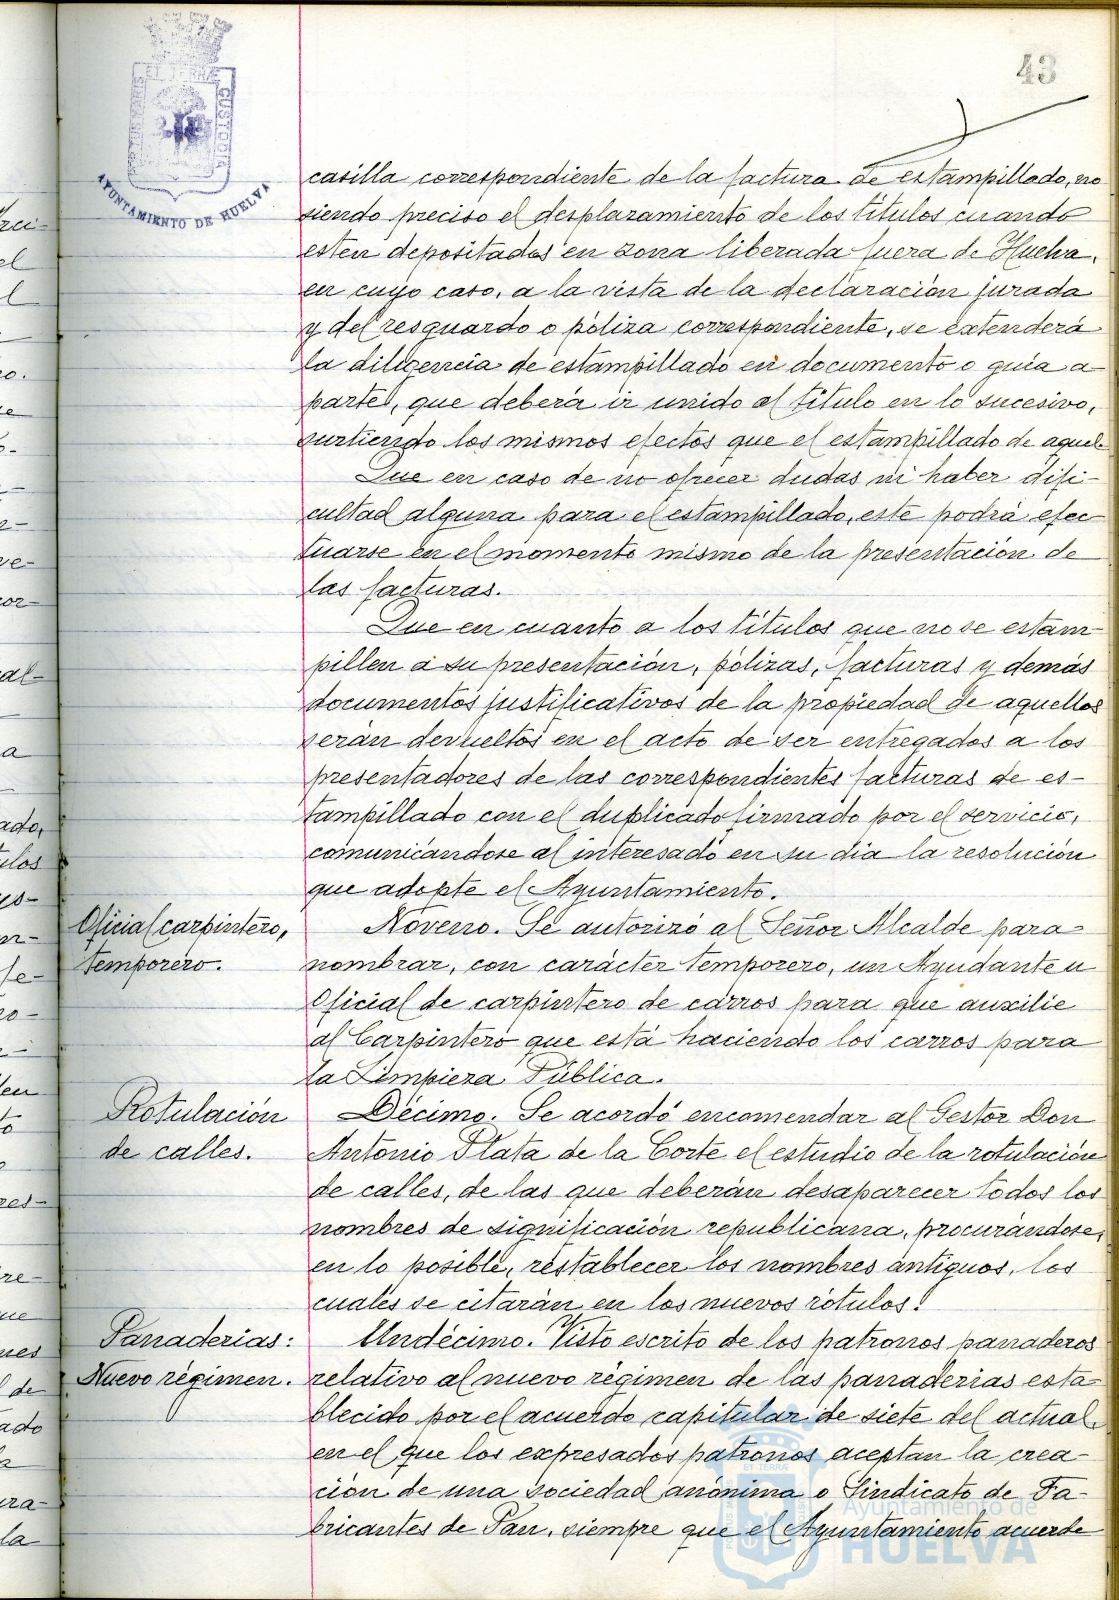 43
ET TERRÆ CUSTODIA
AYUNTAMIENTO DE HUELVA
casilla correspondiente de la factura de estampillado, no
siendo preciso el desplazamiento de los títulos cuando
esten depositados en zona liberada fuera de Huelva,
en cuyo caso, a la vista de la declaración jurada
y del resguardo o póliza correspondiente, se extenderá
la diligencia de estampillado en documento o guía a-
parte, que deberá ir unido al título en lo sucesivo,
surtiendo los mismos efectos que el estampillado de aquel.
Que en caso de no ofrecer dudas ni haber difi-
cultad alguna para el estampillado, este podrá efec-
tuarse en el momento mismo de la presentación de
las facturas.
Que en cuanto a los títulos que no se estam-
pillen a su presentación, pólizas, facturas y demás
documentos justificativos de la propiedad de aquellos
serán devueltos en el acto de ser entregados a los
presentadores de las correspondientes facturas de es-
tampillado con el duplicado firmado por el servicio,
comunicándose al interesado en su dia la resolución
que adopte el Ayuntamiento.
Oficial carpintero,
temporero.
Noveno. Se autorizó al Señor Alcalde para
nombrar, con carácter temporero, un Ayudante u
Oficial de carpintero de carros para que auxilie
al Carpintero que está haciendo los carros para
la Limpieza Pública.
Rotulación
de calles.
Décimo. Se acordó encomendar al Gestor Don
Antonio Plata de la Corte el estudio de la rotulación
de calles, de las que deberán desaparecer todos los
nombres de significación republicana, procurándose,
en lo posible, restablecer los nombres antiguos, los
cuales se citarán en los nuevos rótulos.
Panaderias:
Nuevo régimen.
Undécimo. Visto escrito de los patronos panaderos
relativo al nuevo régimen de las panaderias esta-
blecido por el acuerdo capitular de siete del actual,
en el que los expresados patronos aceptan la crea-
ción de una sociedad anónima o Sindicato de Fa-
bricantes de Pan, siempre que el Ayuntamiento acuerde
Ayuntamiento de
HUELVA